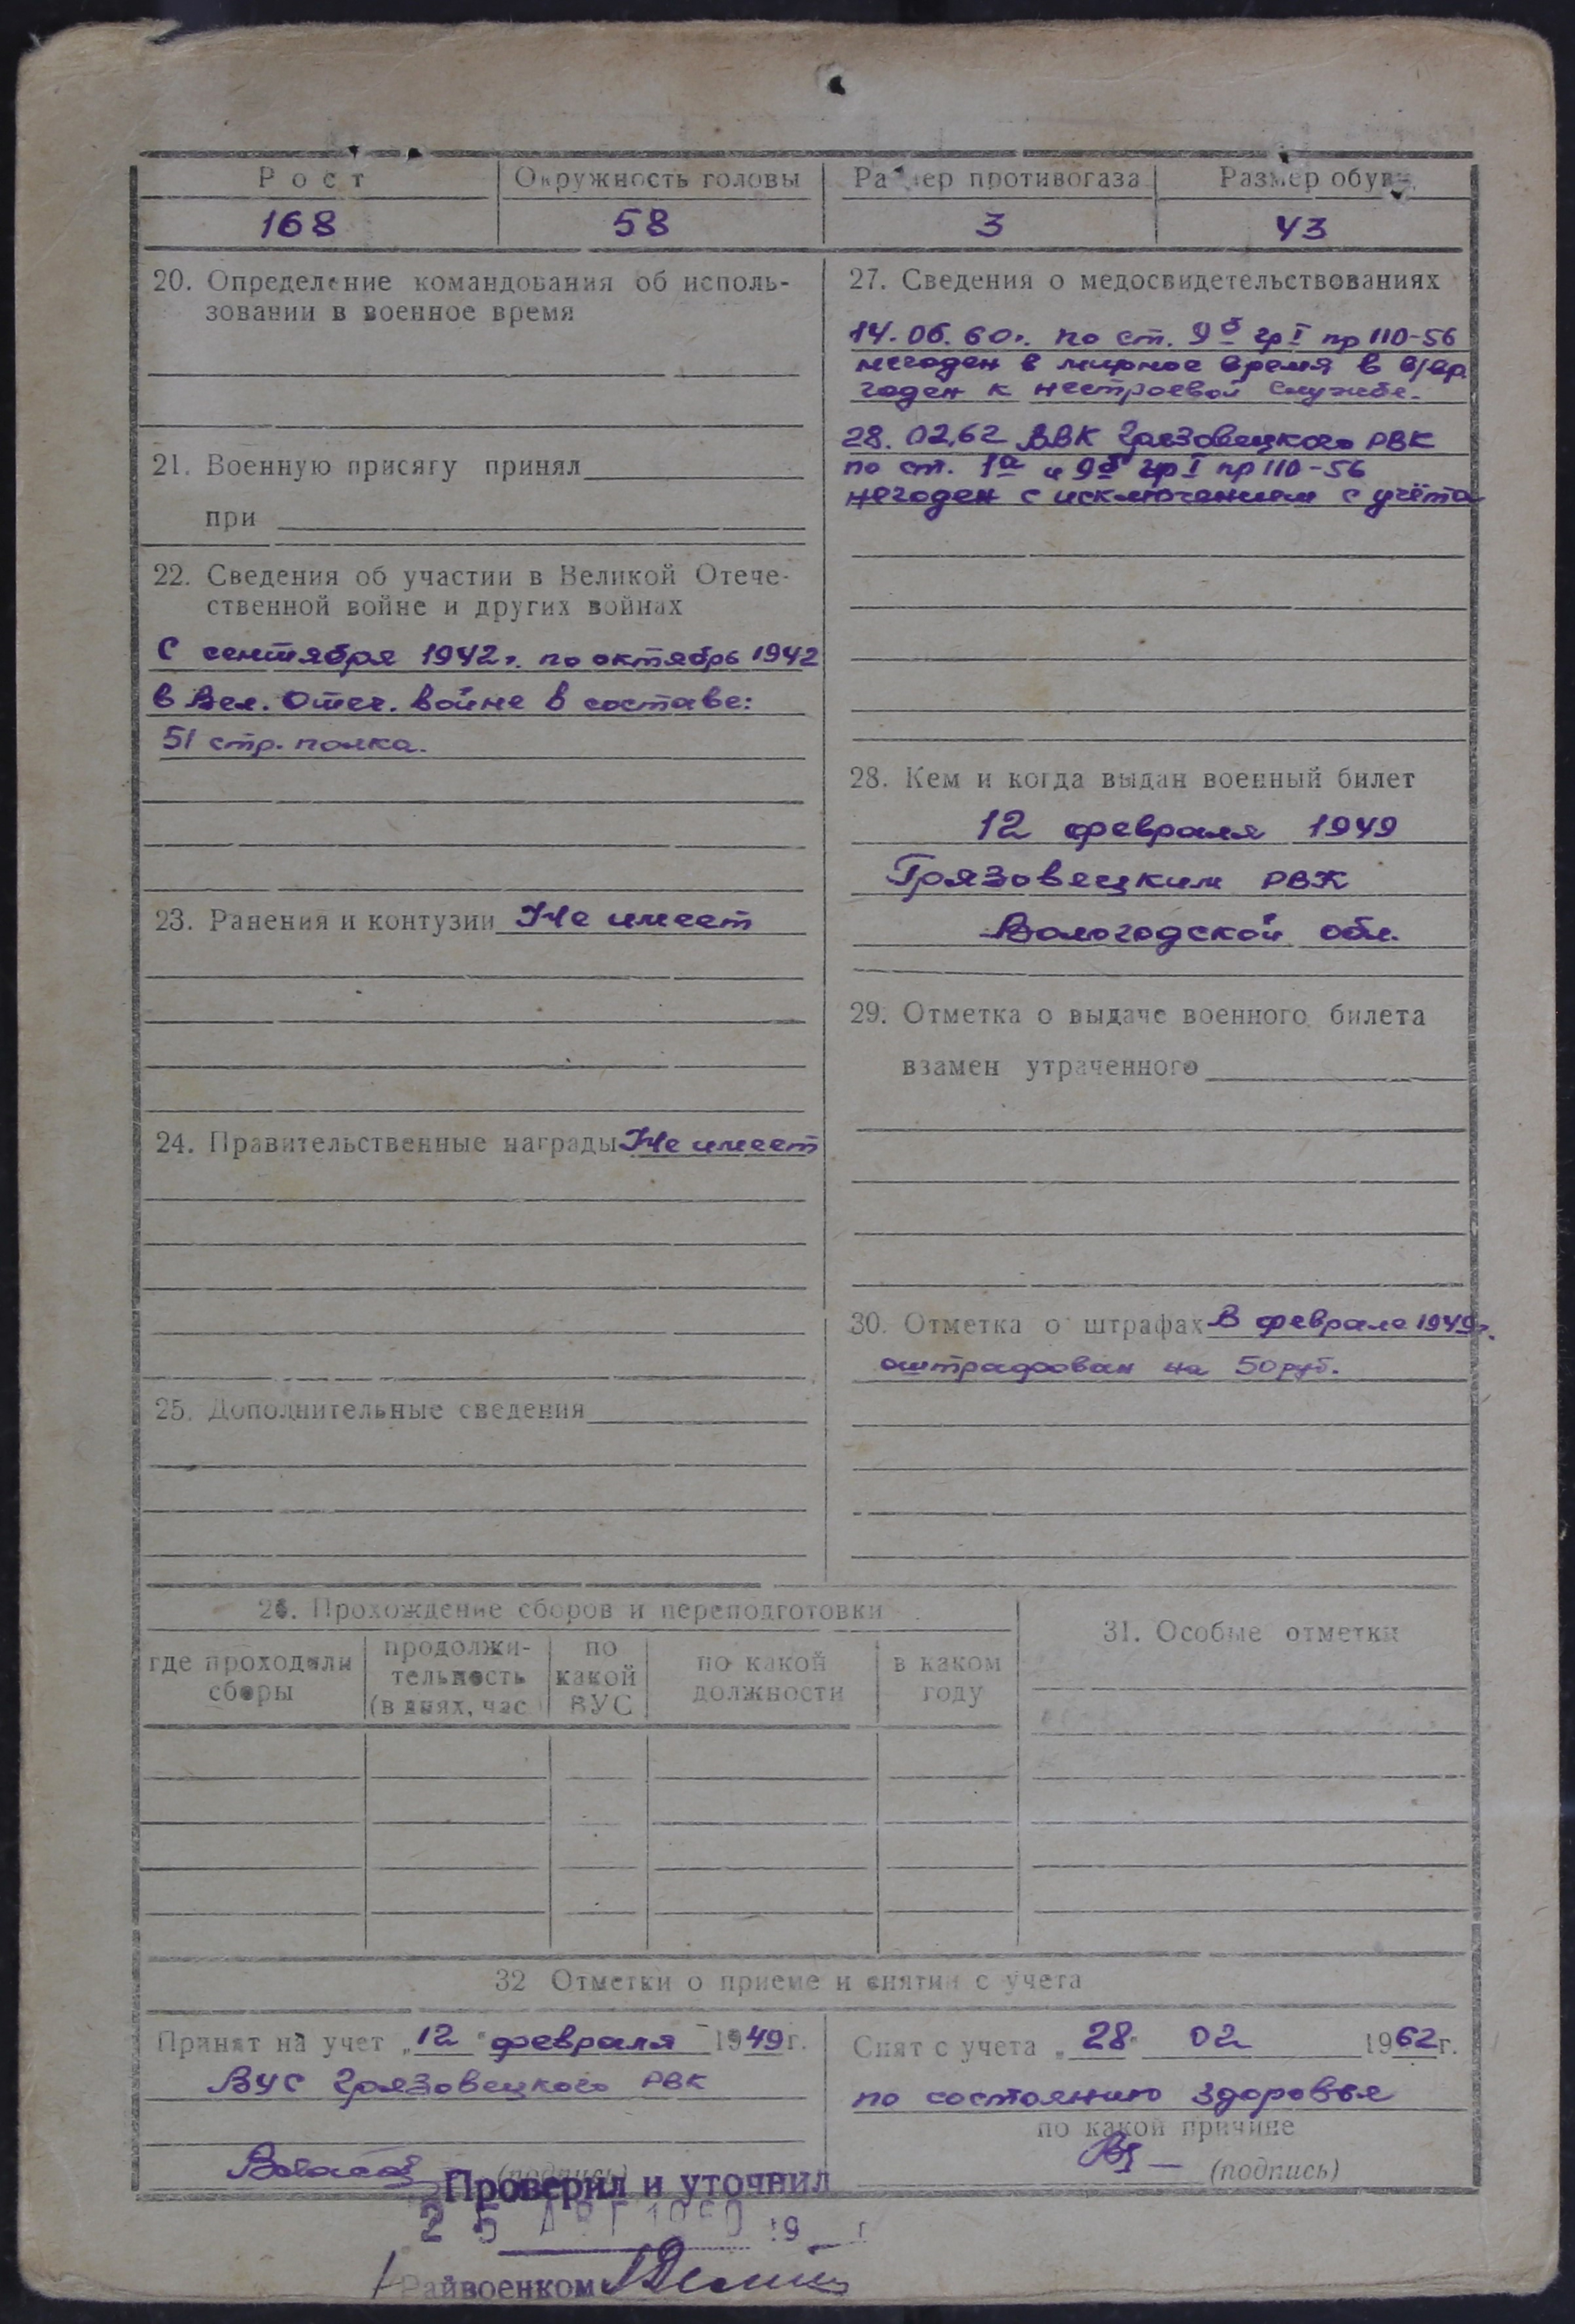 Рост
Окружность головы
Размер противогаза
Размер обуви
168
58
3
43
20. Определение командования об исполь-
зовании в военное время
21. Военную присягу принял
при
22. Сведения об участии в Великой Отече-
ственной войне и других войнах
С сентября 1942 г. по октябрь 1942
в Вел. Отеч. войне в составе:
51 стр. полка.
23. Ранения и контузии Не имеет
24. Правительственные награды Не имеет
25. Дополнительные сведения
27. Сведения о медосвидетельствованиях
14.06.60г. по ст. 9б гр I пр 110-56
негоден в мирное время в в/вр.
годен к нестроевой службе.
28.02.62 ВВК Грязовецкого РВК
по ст. 1а и 9б гр I пр 110-56
негоден с исключением с учёта
28. Кем и когда выдан военный билет
12 февраля 1949
Грязовецким РВК
Вологодской обл.
29. Отметка о выдаче военного билета
взамен утраченного
30. Отметка о штрафах В феврале 1949г.
оштрафован на 50 руб.
26. Прохождение сборов и переподготовки
где проходили
сборы
продолжи-
тельность
(в днях, час.)
по
какой
ВУС
по какой
должности
в каком
году
31. Особые отметки
32 Отметки о приеме и снятии с учета
Принят на учет „12" февраля 1949г.
ВУС Грязовецкого РВК
(подпись)
Снят с учета „28" 02 1962г.
по состоянию здоровья
по какой причине
(подпись)
Проверил и уточнил
25 АВГ 1960 19 г
Райвоенком